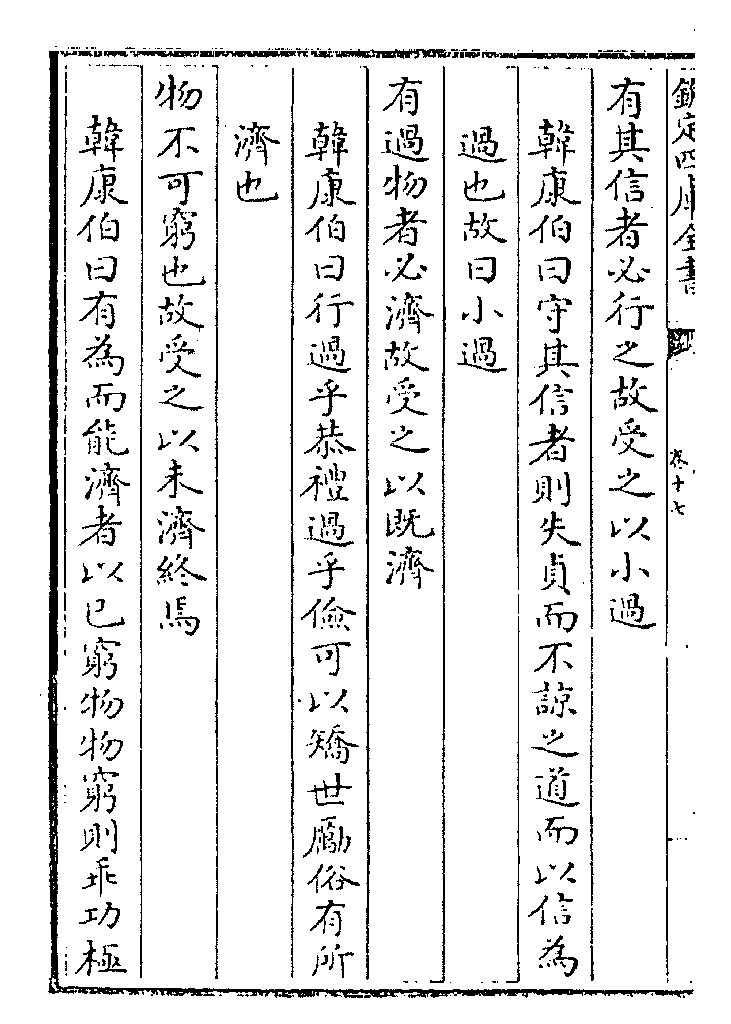 欽定四庫全書
卷十七
有其信者必行之故受之以小過
韓康伯曰守其信者則失貞而不諒之道而以信為
過也故曰小過
有過物者必濟故受之以既濟
韓康伯曰行過乎恭禮過乎儉可以矯世勵俗有所
濟也
物不可窮也故受之以未濟終焉
韓康伯曰有為而能濟者以已窮物物窮則乖功極